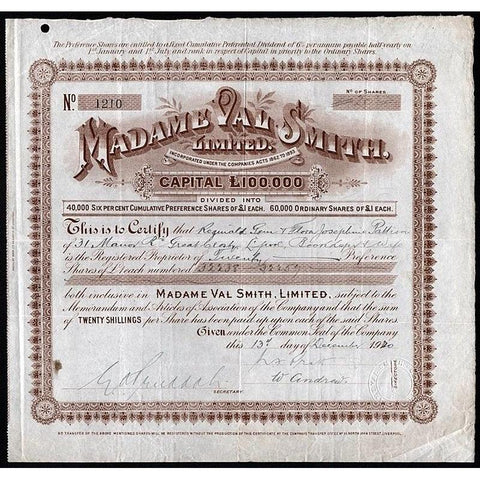 The Preference Shares are entitled to a fixed Cumulative Preferential Dividend of 6% per annum payable half-yearly on
1st January and 1st July and rank in respect of Capital in priority to the Ordinary Shares.
No. 1210
No OF SHARES
MADAME VAL SMITH,
LIMITED.
INCORPORATED UNDER THE COMPANIES ACTS 1862 TO 1893
CAPITAL £100,000
DIVIDED INTO
40,000 SIX PER CENT CUMULATIVE PREFERENCE SHARES OF £1 EACH. 60,000 ORDINARY SHARES OF £1 EACH.
This is to Certify that Reginald Tom & Flora Josephine
of 31 Manor Rd Great Crosby L'pool
is the Registered Proprietor of Twenty Preference
Shares of £1 each numbered 32238 32257
both inclusive in MADAME VAL SMITH, LIMITED, subject to the
Memorandum and Articles of Association of the Company and that the sum
of TWENTY SHILLINGS per Share has been paid up upon each of the said Shares.
Given under the Common Seal of the Company
this 13th day of December 1920
W Andrew
DIRECTORS
NO TRANSFER OF THE ABOVE MENTIONED SHARES WILL BE REGISTERED WITHOUT THE PRODUCTION OF THIS CERTIFICATE AT THE COMPANY'S TRANSFER OFFICE NORTH JOHN STREET, LIVERPOOL.